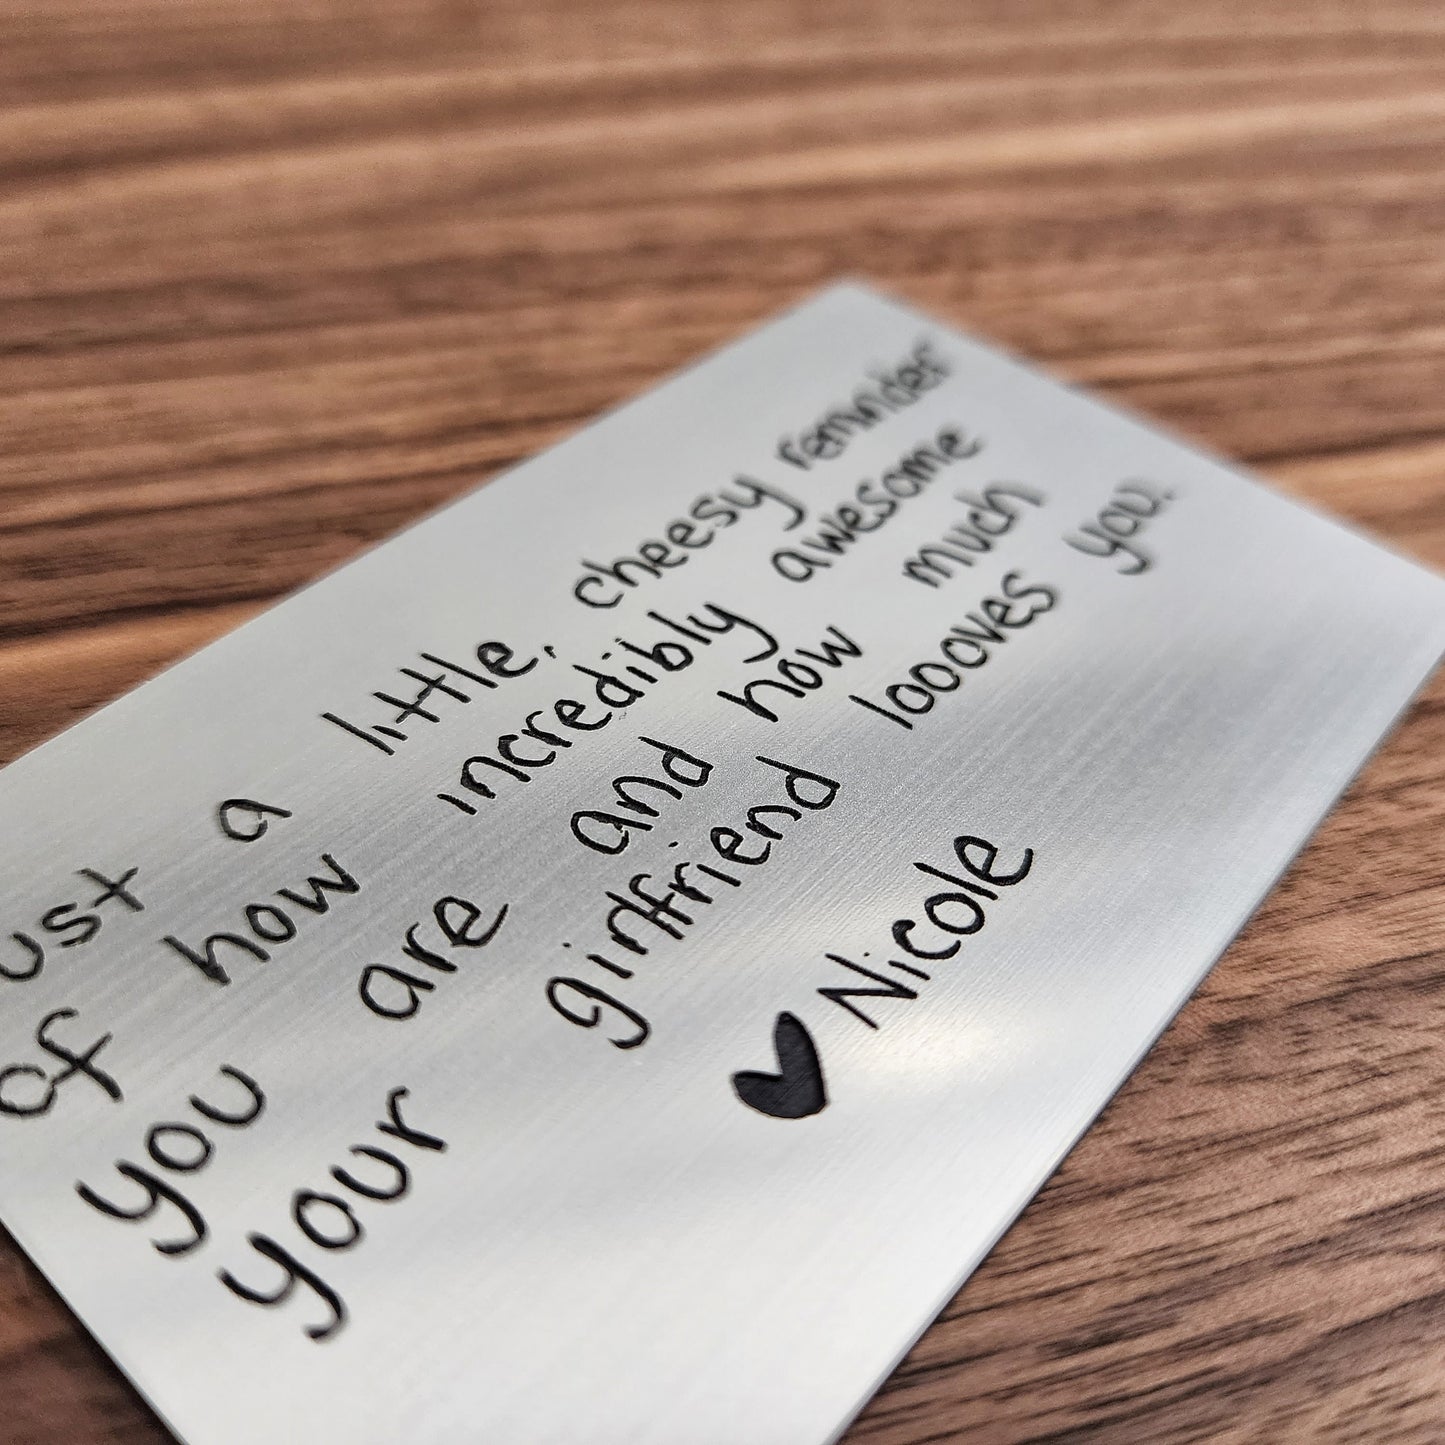 ust a little, cheesy reminder
of how incredibly awesome
you are and how much
your girlfriend loooves you.
♥ Nicole